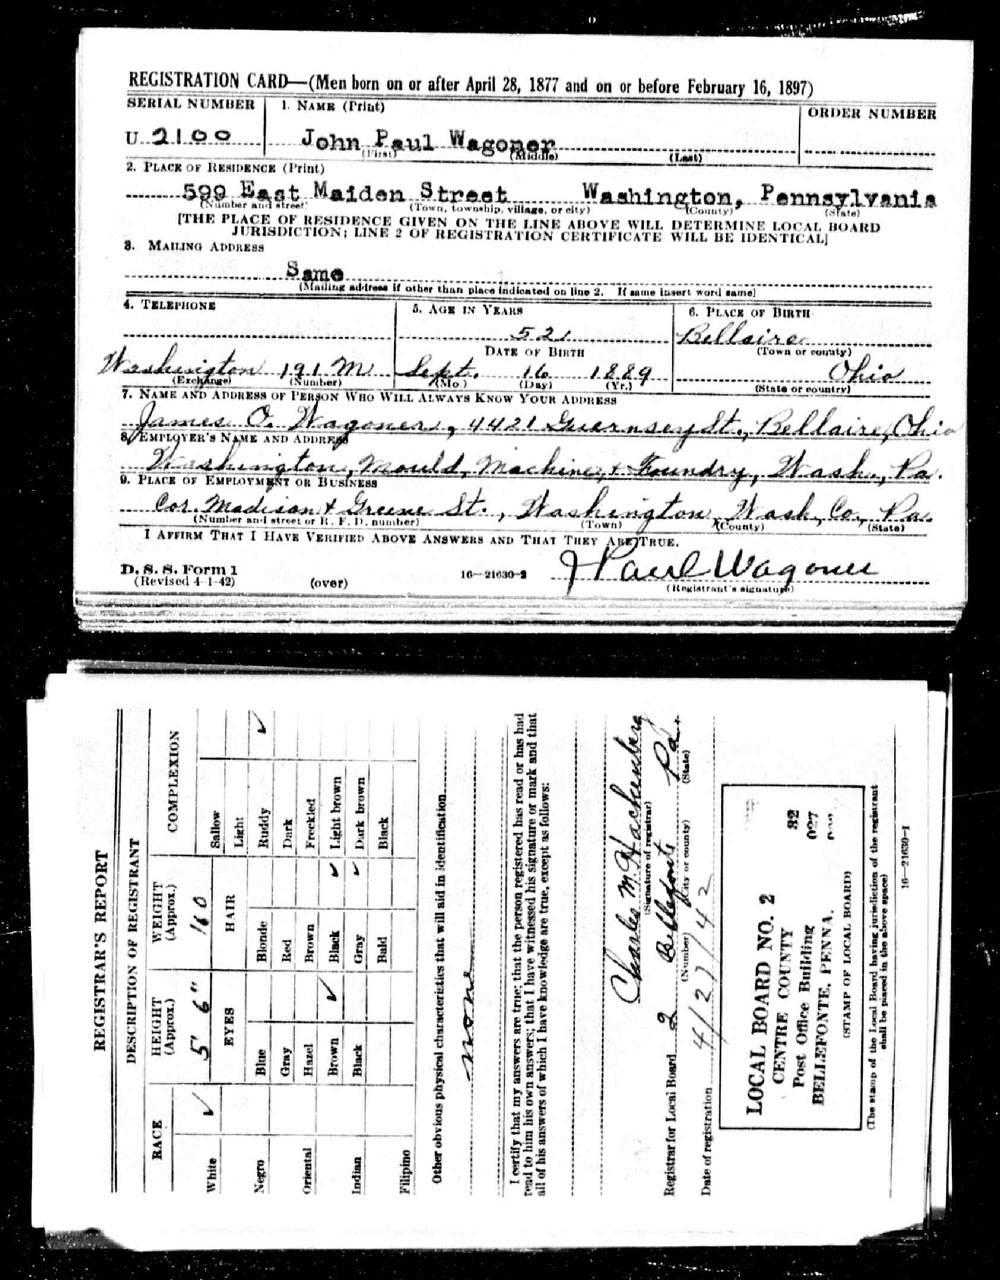 REGISTRATION CARD—(Men born on or after April 28, 1877 and on or before February 16, 1897)
SERIAL NUMBER 1. NAME (Print) ORDER NUMBER
U 2100 John Paul Wagoner
(First) (Middle) (Last)
2. PLACE OF RESIDENCE (Print)
599 East Maiden Street Washington, Pennsylvania
(Number and street) (Town, township, village, or city) (County) (State)
[THE PLACE OF RESIDENCE GIVEN ON THE LINE ABOVE WILL DETERMINE LOCAL BOARD
JURISDICTION; LINE 2 OF REGISTRATION CERTIFICATE WILL BE IDENTICAL]
3. MAILING ADDRESS
Same
(Mailing address if other than place indicated on line 2. If same insert word same)
4. TELEPHONE 5. AGE IN YEARS 6. PLACE OF BIRTH
52 Bellaire
DATE OF BIRTH (Town or county)
Washington 191 M Sept. 16 1889 Ohio
(Exchange) (Number) (Mo.) (Day) (Yr.) (State or country)
7. NAME AND ADDRESS OF PERSON WHO WILL ALWAYS KNOW YOUR ADDRESS
James O. Wagoner, 4421 Guernsey St., Bellaire, Ohio
8. EMPLOYER'S NAME AND ADDRESS
Washington, Mould, Machine, & Foundry, Wash., Pa.
9. PLACE OF EMPLOYMENT OR BUSINESS
Cor. Madison & Greene St., Washington Wash. Co. Pa.
(Number and street or R. F. D. number) (Town) (County) (State)
I AFFIRM THAT I HAVE VERIFIED ABOVE ANSWERS AND THAT THEY ARE TRUE.
D. S. S. Form 1
(Revised 4-1-42) (over) 16—21630-2 J Paul Wagoner
(Registrant's signature)
REGISTRAR'S REPORT
DESCRIPTION OF REGISTRANT
RACE HEIGHT (Approx.) WEIGHT (Approx.) COMPLEXION
White ✓ 5' 6" 160 Sallow
EYES HAIR Light
Negro Blue Blonde Ruddy ✓
Gray Red Dark
Oriental Hazel Brown Freckled
Brown ✓ Black ✓ Light brown
Indian Black Gray ✓ Dark brown
Bald Black
Filipino
Other obvious physical characteristics that will aid in identification
none
I certify that my answers are true; that the person registered has read or has had
read to him his own answers; that I have witnessed his signature or mark and that
all of his answers of which I have knowledge are true, except as follows:
Charles M. Hachenberg
(Signature of registrar)
Registrar for Local Board 2 Bellefonte Pa.
(Number) (City or county) (State)
Date of registration 4/27/42
LOCAL BOARD NO. 2 32
CENTRE COUNTY 027
Post Office Building
BELLEFONTE, PENNA.
(STAMP OF LOCAL BOARD)
(The stamp of the Local Board having jurisdiction of the registrant
shall be placed in the above space)
16—21630-1